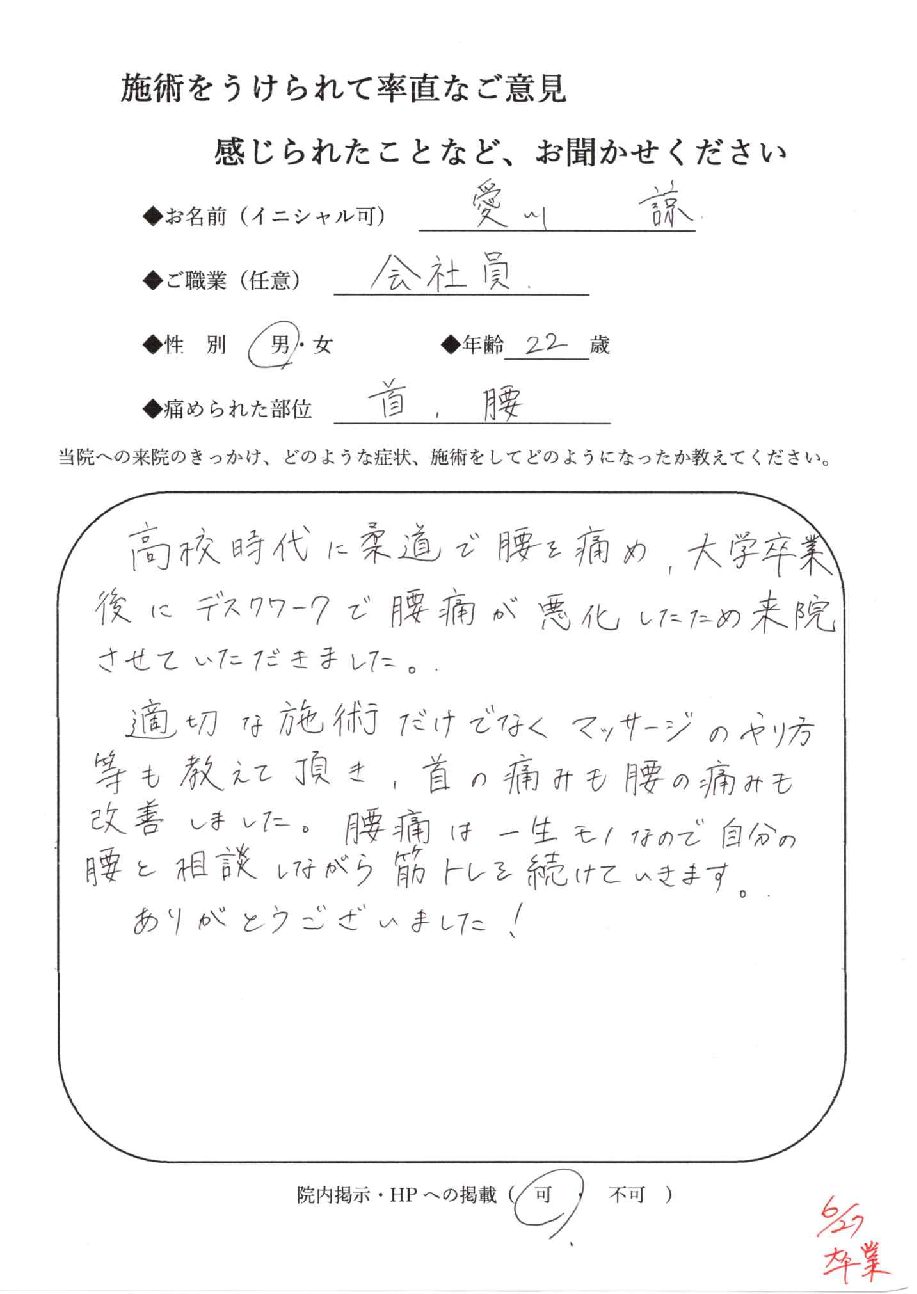 施術をうけられて率直なご意見
感じられたことなど、お聞かせください
◆お名前（イニシャル可） 愛川 諒
◆ご職業（任意） 会社員
◆性 別 男・女 ◆年齢 22 歳
◆痛められた部位 首、腰
当院への来院のきっかけ、どのような症状、施術をしてどのようになったか教えてください。
高校時代に柔道で腰を痛め、大学卒業
後にデスクワークで腰痛が悪化したため来院
させていただきました。
適切な施術だけでなくマッサージのやり方
等も教えて頂き、首の痛みも腰の痛みも
改善しました。腰痛は一生モノなので自分の
腰と相談しながら筋トレを続けていきます。
ありがとうございました！
院内掲示・HPへの掲載（ 可 ・ 不可 ）
6/27
卒業